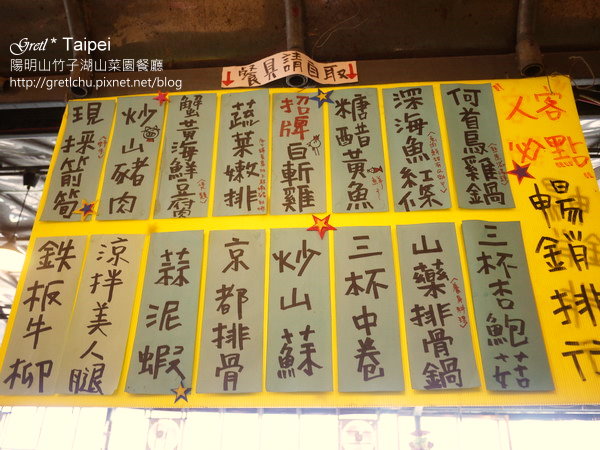 Gretl * Taipei
陽明山竹子湖山菜園餐廳
http://gretlchu.pixnet.net/blog
↓餐具請自取↓
人客必點
暢銷排行
何首烏雞鍋
深海魚紅糟
糖醋黃魚
招牌白斬雞
蔬菜嫩排
蟹黃海鮮豆腐
炒山豬肉
現採箭筍
三杯杏鮑菇
山藥排骨鍋
三杯中卷
炒山蘇
京都排骨
蒜泥蝦
涼拌美人腿
鉄板牛柳